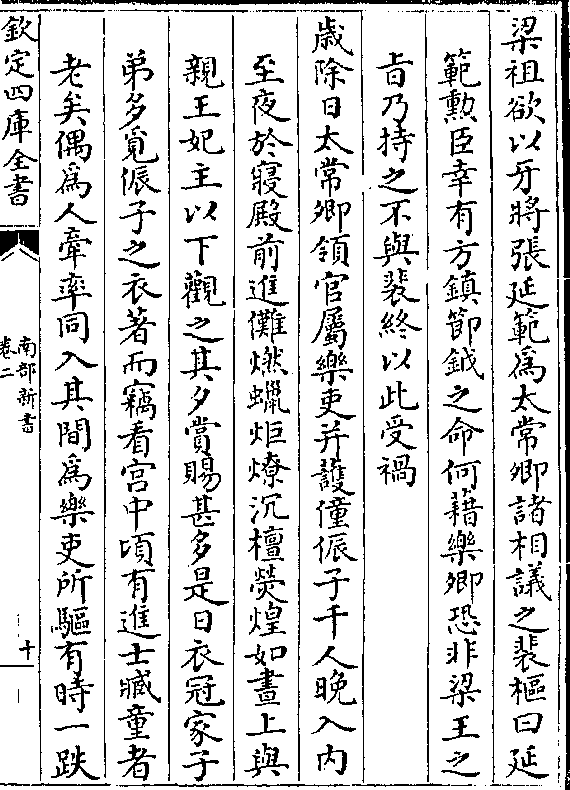 梁祖欲以牙將張延範為太常卿諸相議之裴樞曰延
範勲臣幸有方鎮節鉞之命何藉樂卿恐非梁王之
㫖乃持之不與裴終以此受禍
歳除日太常卿領官屬樂吏并護僮侲子千人晚入内
至夜於寝殿前進儺燃蠟炬燎沉檀熒煌如晝上與
親王妃主以下觀之其夕賞賜甚多是日衣冠家子
弟多覓侲子之衣著而竊看宫中頃有進士臧童者
老矣偶為人牽率同入其間為樂吏所驅有時一跌
欽定四庫全書
南部新書
卷二
十